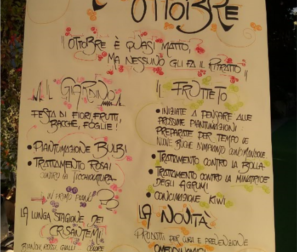 OTTOBRE
! OTTOBRE È QUASI MATTO,
MA NESSUNO GLI FA IL !
IL GIARDINO
FESTA DI FIORI, FRUTTI,
BACCHE, FOGLIE!
• PIANTUMAZIONE BULBI
• TRATTAMENTO ROSAI
LA LUNGA STAGIONE DEI
CRISANTEMI
IL FRUTTETO
• INIZIATE A PENSARE ALLE
PROSSIME PIANTUMAZIONI
PREPARATE PER TEMPO LE
• TRATTAMENTO CONTRO LA BOLLA
• TRATTAMENTO CONTRO LA MINATRICE
DEGLI AGRUMI
• CONCIMAZIONE KIWI
LA NOVITÀ
PRODOTTI PER CURA E PREVENZIONE